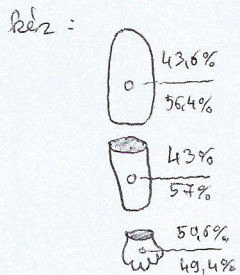 kéz :
43,6%
56,4%
43%
57%
50,6%
49,4%